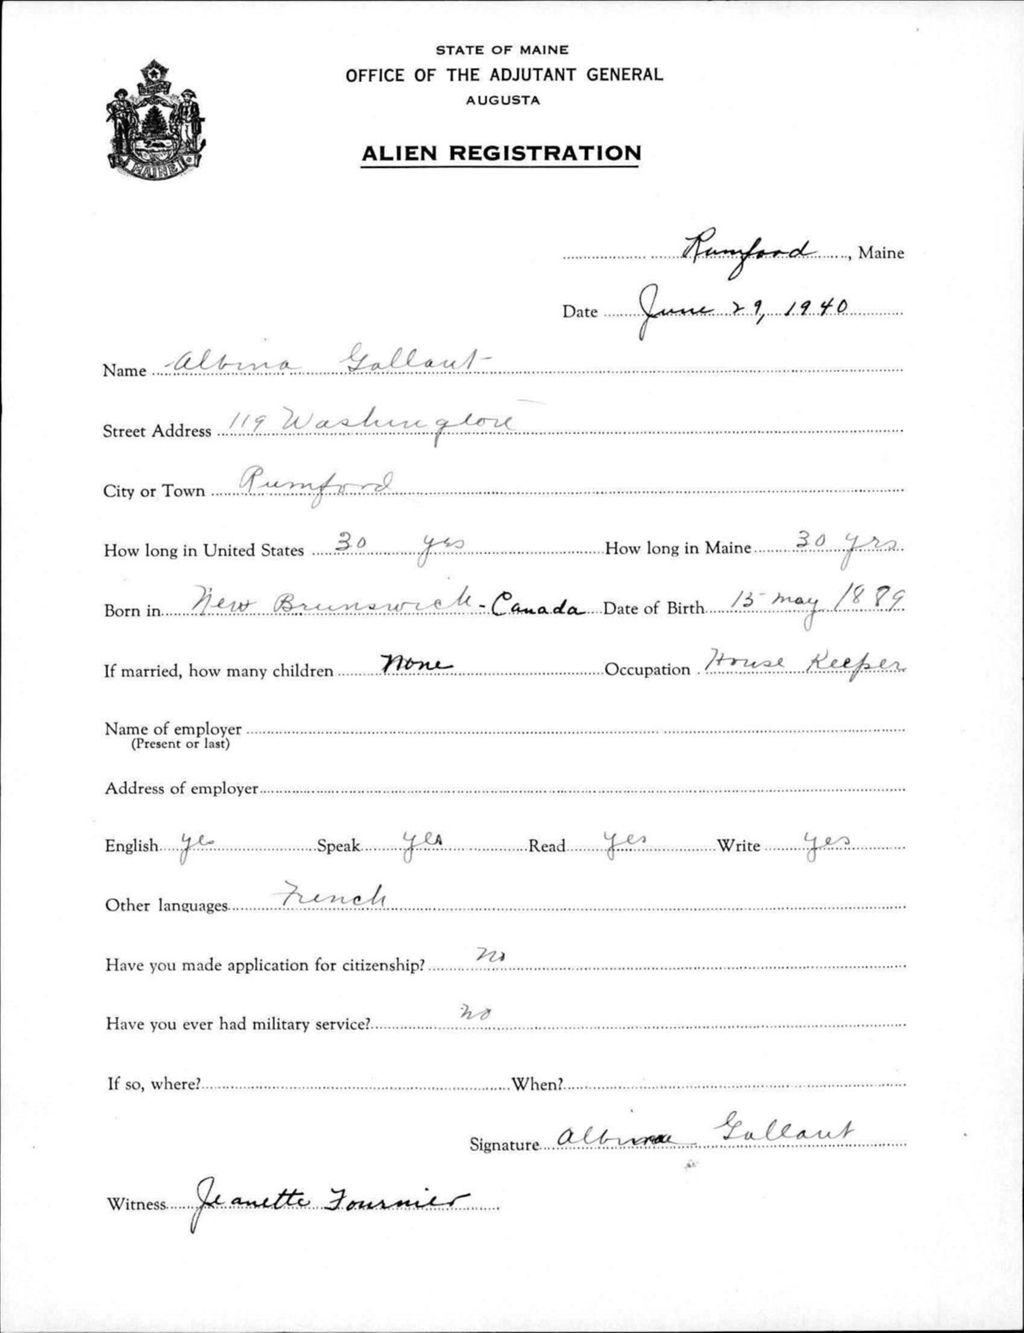 STATE OF MAINE
OFFICE OF THE ADJUTANT GENERAL
AUGUSTA
ALIEN REGISTRATION
MAINE
Rumford, Maine
Date June 29, 1940
Name Albina Gallant
Street Address 119 Washington
City or Town Rumford
How long in United States 30 yrs How long in Maine 30 yrs
Born in New Brunswick - Canada Date of Birth 15 May 1889
If married, how many children None Occupation House Keeper
Name of employer
(Present or last)
Address of employer
English yes Speak yes Read yes Write yes
Other languages French
Have you made application for citizenship? no
Have you ever had military service? no
If so, where? When?
Signature Albina Gallant
Witness Jeanette Fournier